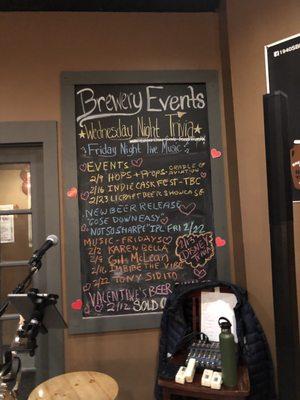 Brewery Events
Wednesday Night Trivia
Friday Night Live Music
EVENTS
2/9 HOPS + PROPS - CRADLE OF AVIATION
2/16 INDIE CASK FEST - TBC
2/23 LIRR CRAFT BEER SHOWCASE
NEW BEER RELEASE
NOSE DOWN EASY
NOT SO SHARPE TPL FRI 2/22
MUSIC - FRIDAYS
2/2 KAREN BELLA
2/9 GIL McLEAN
2/16 IMBIBE THE VIBE
2/22 TONY SIDITO
VALENTINE'S BEER
2/12 SOLD
1940SB